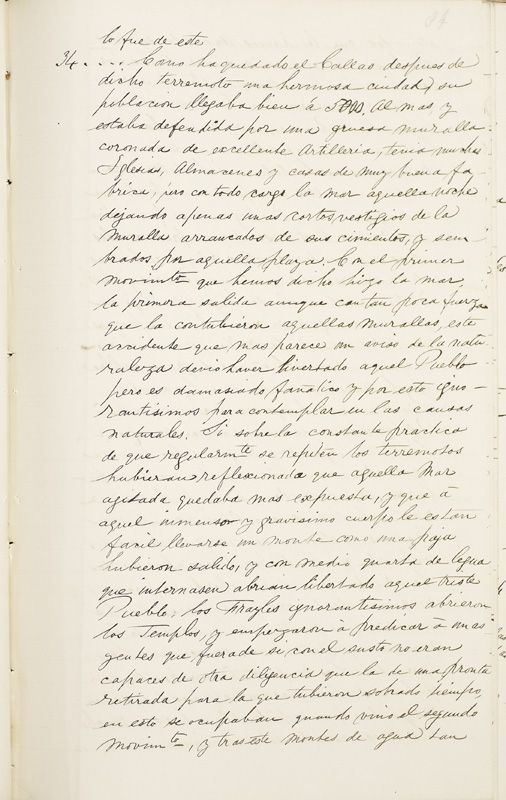 84
lo fue de este
34. . . . Como ha quedado el Callao despues de
dicho terremoto una hermosa ciudad, su
poblacion llegaba bien à 5000, Almas y
estaba defendida por una gruesa muralla
coronada de excellente Artilleria, tenia muchas
Iglesias, Almacenes y casas de muy buena fa-
brica, pero con todo cargo la mar aquella noche
dejando apenas unas cortos vestigios de la
muralla arrancados de sus cimientos, y sem
brados por aquella playa. Con el primer
movimto que hemos dicho hizo la mar
la primera salida aunque con tan poca fuerza
que la contubieron aquellas murallas, este
accidente que mas parece un aviso de la natu
raleza devio haver livertado aquel Pueblo
pero es damasiado fanatico y por esto igno-
rantisimos para contemplar en las causas
naturales. Si sobre la constante practica
de que regularmte se repiten los terremotos
hubieran reflexionado que aquella Mar
agitada quedaba mas expuesta, y que à
aquel inmenso y gravisimo cuerpo le es tan
facil llevarse un monte como una paja
hubieron salido, y con medio quarto de legua
que internasen abrian libertado aquel triste
Pueblo; los Frayles ignorantisimos abrieron
los Templos, y empezaron à predicar à unas
gentes que fuera de si con el susto no eran
capaces de otra diligencia que la de una pronta
retirada para la que tubieron sobrado tiempo,
en esto se ocupaban quando vino el segundo
movimto, y tras este montes de agua tan